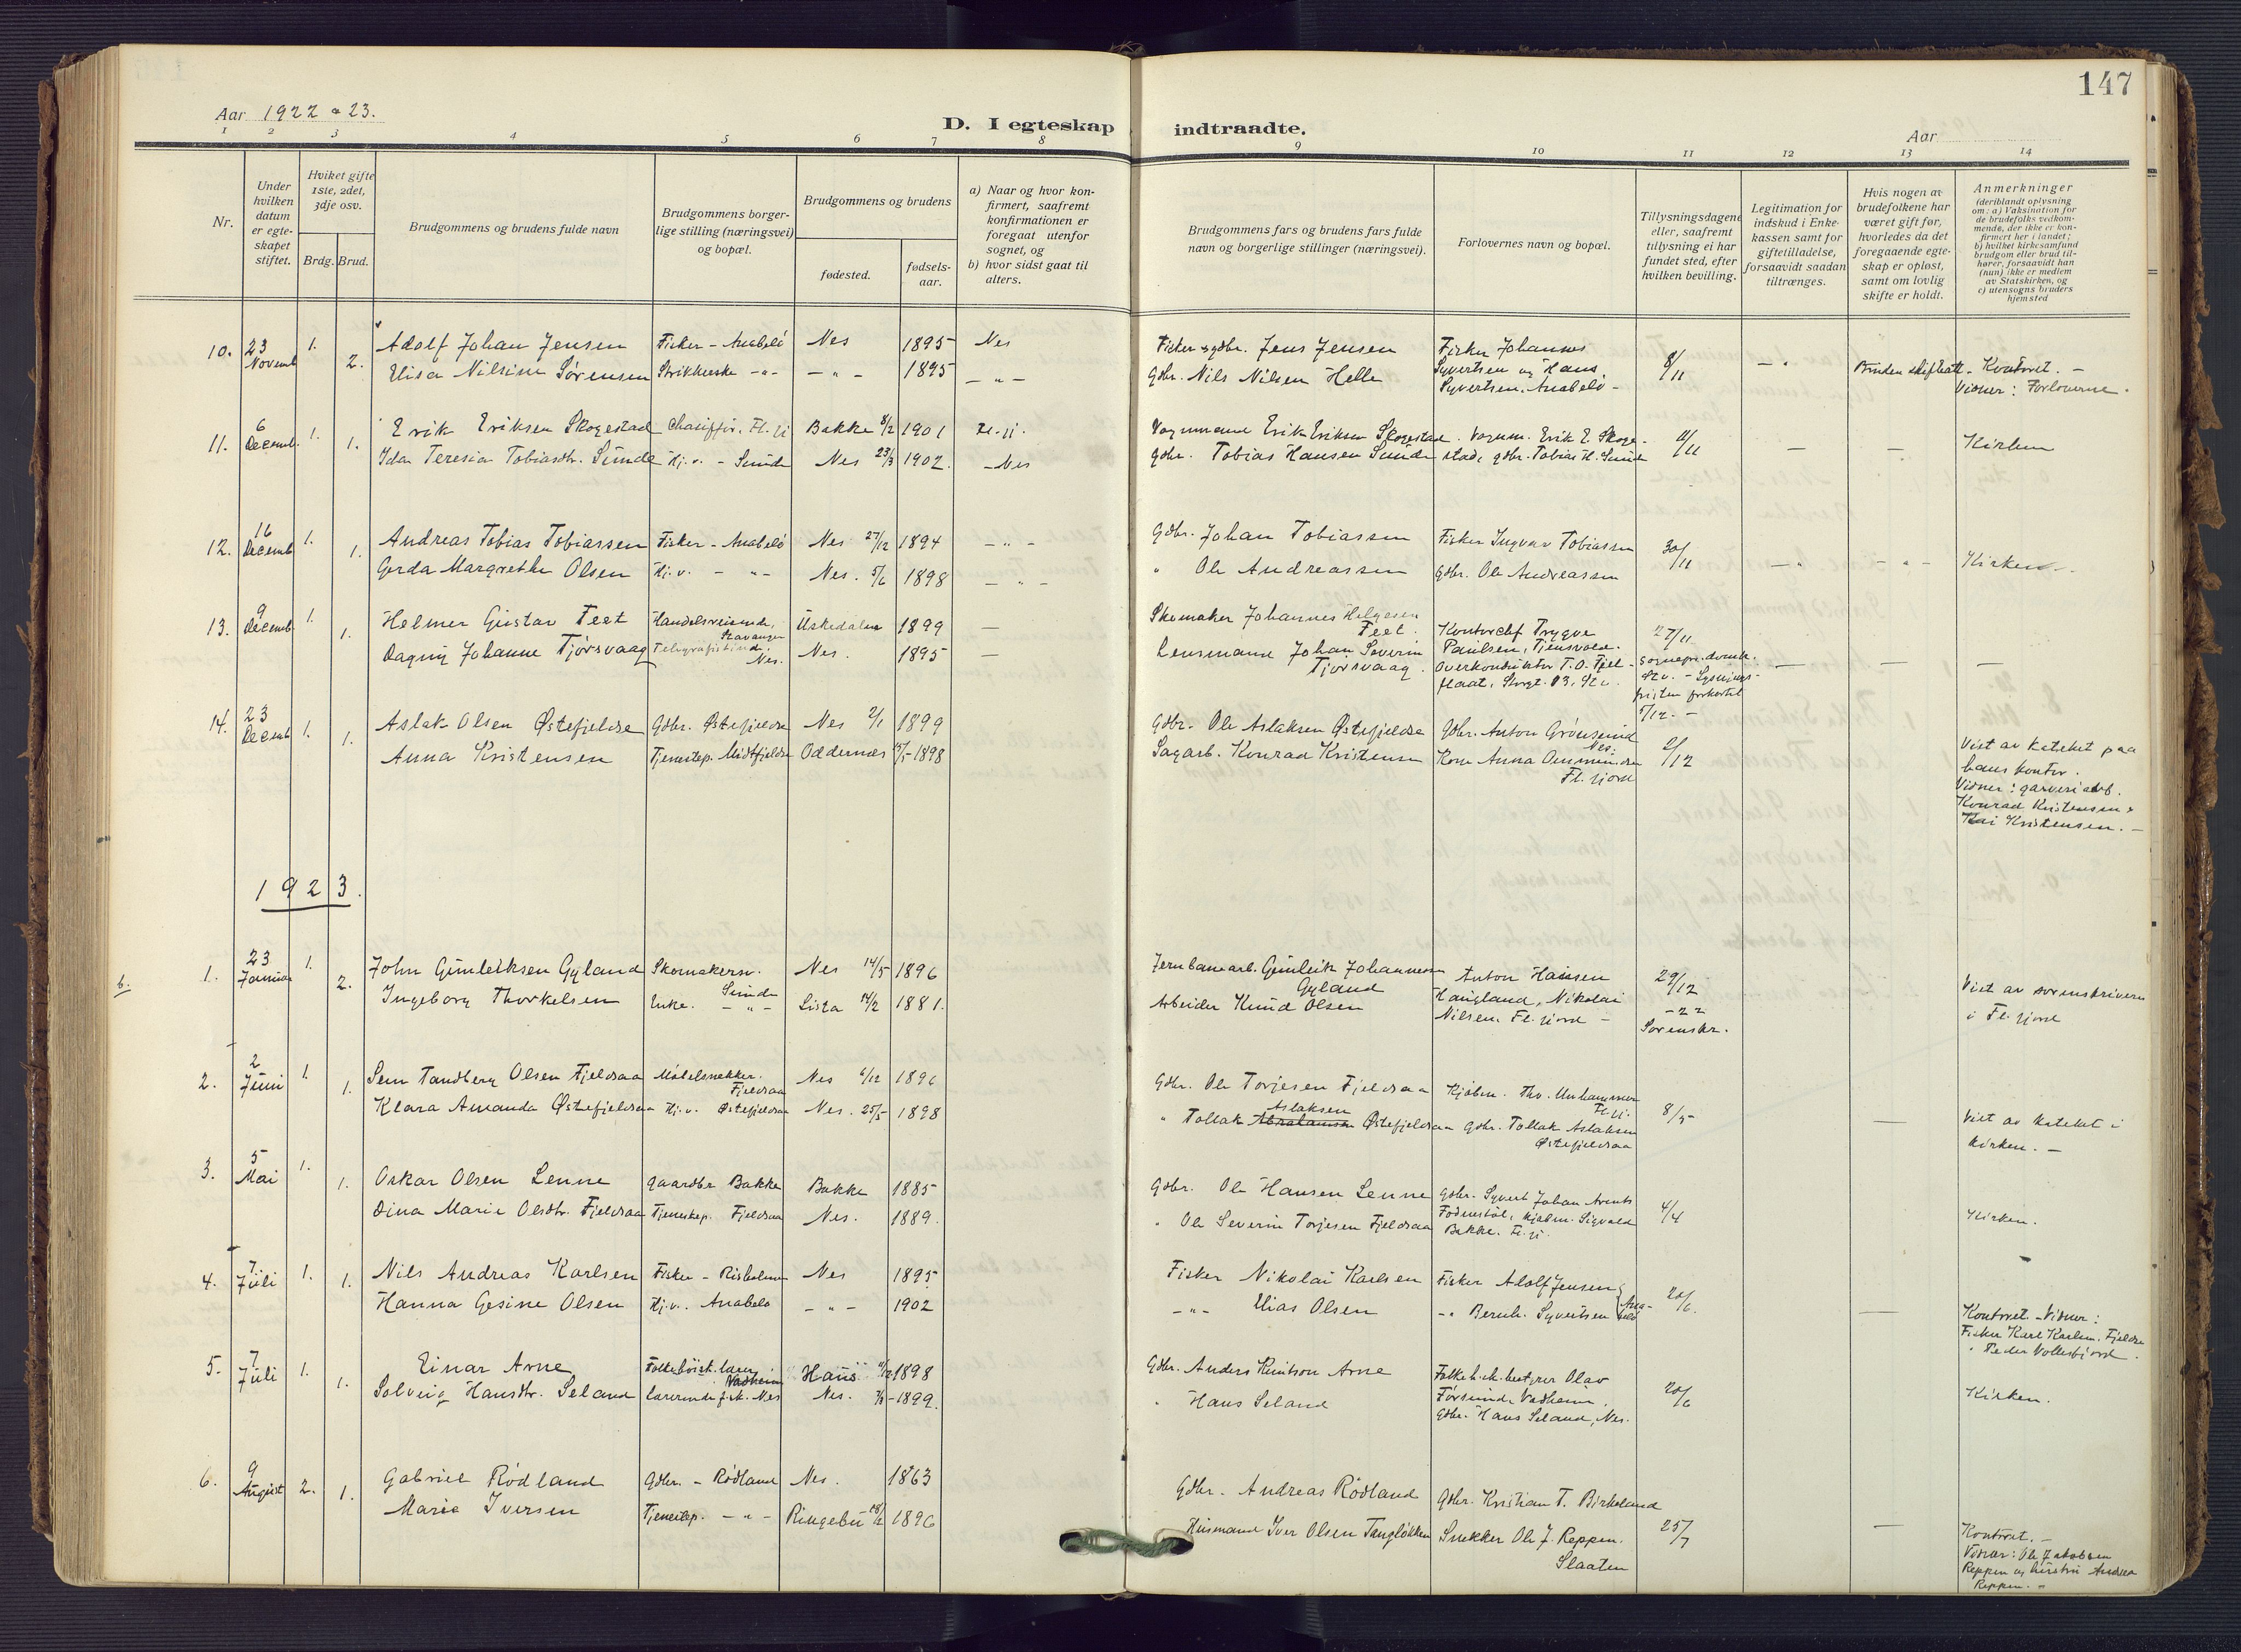 147
Aar 1922 o 23.
D. I egteskap indtraadte.
Aar
1 2 3 4 5 6 7 8 9 10 11 12 13 14
Nr.
Under hvilken datum er egteskapet stiftet.
Hviket gifte 1ste, 2det, 3dje osv.
Brdg. Brud.
Brudgommens og brudens fulde navn
Brudgommens borgerlige stilling (næringsvei) og bopæl.
Brudgommens og brudens
fødested.
fødselsaar.
a) Naar og hvor konfirmert, saafremt konfirmationen er foregaat utenfor sognet, og
b) hvor sidst gaat til alters.
Brudgommens fars og brudens fars fulde navn og borgerlige stillinger (næringsvei).
Forlovernes navn og bopæl.
Tillysningsdagene eller, saafremt tillysning ei har fundet sted, efter hvilken bevilling.
Legitimation for indskud i Enkekassen samt for giftetilladelse, forsaavidt saadan tiltrænges.
Hvis nogen av brudefolkene har været gift før, hvorledes da det foregaaende egteskap er opløst, samt om lovlig skifte er holdt.
Anmerkninger (deriblandt oplysning om: a) Vaksination for de brudefolks vedkommende, der ikke er konfirmert her i landet; b) hvilket kirkesamfund brudgom eller brud tilhører, forsaavidt han (hun) ikke er medlem av Statskirken, og c) utensogns bruders hjemsted
10. 23 Novemb 1. Adolf Johan Jensen Fisker - Anabelö Nes 1895 Nes Fisker & gdbr. Jens Jensen Fisker Johannes
2. Elisa Nilsine Sørensen Strikkerske - " - - " - 1895 - " - Gdbr. Nils Nilsen Helle Syvertsen og Hans Syvertsen, Anabelö - 8/11 Bruden skifteatt. - Kontoret. - Vidner: Forloverne.
11. 6 Decemb. 1. Erik Eriksen Skogestad Chauffør. Fl.fj Bakke 8/2 1901 Fl.fj. Vognmand Erik Eriksen Skogestad. Vognm. Erik E. Skoge-
1. Ida Teresia Tobiasdtr. Sunde Hj.v. - Sunde Nes 23/3 1902. - Nes gdbr. Tobias Hansen Sunde stad, gdbr. Tobias H. Sunde 11/11 - - Kirken
12. 16 Decemb 1. Andreas Tobias Tobiassen Fisker - Anabelö Nes 27/12 1894 - " - Gdbr. Johan Tobiassen Fisker Ingvar Tobiassen
1. Gerda Margrethe Olsen Hj.v. - " - Nes. 5/6 1898 - " - " Ole Andreassen Gdbr. Ole Andreassen 30/11 - " - Kirken -
13. 9 Decemb. 1. Helmer Gustav Feet Handelsreisende, Stavanger Uskedalen 1899 - Skomaker Johannes Helgesen Feet. Kontorchef Trygve
1. Dagny Johanne Tjørsvaag Telegrafistinde. Nes. Nes. 1895 - Lensmand Johan Severin Tjørsvaag. Paulsen, Tjensvold. Overkonduktør T. O. Fjelflaat, 27/11 - - -
14. 23 Decemb 1. Aslak Olsen Østefjeldsa Gdbr. Østefjeldsa Nes 2/1 1899 Gdbr. Ole Aslaksen Østefjeldsa Gdbr. Anton Grönsund Nes.
1. Anna Kristensen Tjenestep. Midtfjeldsa Oddernes 1898 Sagarb. Konrad Kristensen Anna Fl.fjord 2/12 Viet av katekel paa hans kontor. Vidner: garveriarb. Konrad Kristensen & Kai Kristensen. -
1923.
b. 1. 23 Januar 1. John Gunleiksen Gyland Skomakersv. Sunde Nes 14/5 1896 Jernbanearb. Gunleik Johannessen Gyland Anton Hansen
2. Ingeborg Thorkelsen Enke. - " - Lista 14/2 1881. Arbeider Knud Olsen Haugland, Nikolai Nilsen. Fl.fjord - 29/12 -22 Sorenskr. Viet av sorenskriveren i Fl.fjord
2. 2 Juni 1. Sem Tandberg Olsen Fjeldsaa Møbelsnekker. Fjeldsaa Nes 6/12 1896 Gdbr. Ole Torjesen Fjeldsaa Kjøbm. Thv. Unhammer Fl.fj.
1. Klara Amanda Østefjeldsaa Hj.v. Østefjeldsaa Nes. 25/5 1898 " Tollak Abrahamsen Aslaksen Østefjeldsaa Gdbr. Tollak Aslaksen Østefjeldsaa 8/5 - Viet av katekel i kirken. -
3. 5 Mai 1. Oskar Olsen Lenne Gaardbr Bakke Bakke 1885 Gdbr. Ole Hansen Lenne Gdbr. Syvert Johan Arents
1. Dina Marie Olsdtr. Fjeldsaa Tjenestep. Fjeldsaa Nes. 1889. " Ole Severin Torjesen Fjeldsaa Fodenstöl, kjøbm. Sigvald Bakke. Fl.fj. 4/4 Kirken.
4. 7. Juli 1. Nils Andreas Karlsen Fisker - Risholmen Nes 1895 Fisker Nikolai Karlsen Fisker Adolf Jensen
1. Hanna Gesine Olsen Hj.v. Anabelö - " - 1902 - " - Elias Olsen - " Bernh. Syvertsen Anabelö 20/6. - Kontoret. - Vidner: Fisker Karl Karlsen. Fjeldsa " Peder Vollesfjord.
5. 7 Juli 1. Einar Arne Folkehöisk. lærer Vadheim Haus 1898 Gdbr. Anders Knutson Arne Folkeh.sk. bestyrer Olav
1. Solveig Hansdtr. Seland lærerinde f.sk. Nes Nes. 1899. " Hans Seland Försund Vadheim, Gdbr. Hans Seland, Nes. 20/6 Kirken.
6. 9 August 2. Gabriel Rödland Gdbr. - Rödland Nes. 1863 Gdbr. Andreas Rödland Gdbr. Kristian T. Birkeland
1. Marie Iversen Tjenestep. - " - Ringebu 1896 Husmand Iver Olsen Tanglökken Snekker Ole J. Reppen. Slaaten 25/7 - Kontoret. - Vidner: Ole Jakobsen Reppen og hustru Andrea Reppen. -